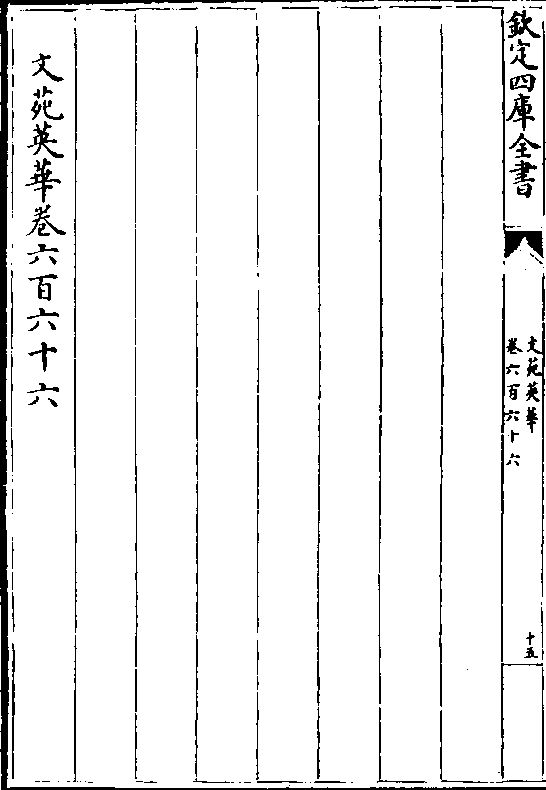 欽定四庫全書
文苑英華
卷六百六十六
十五
文苑英華卷六百六十六